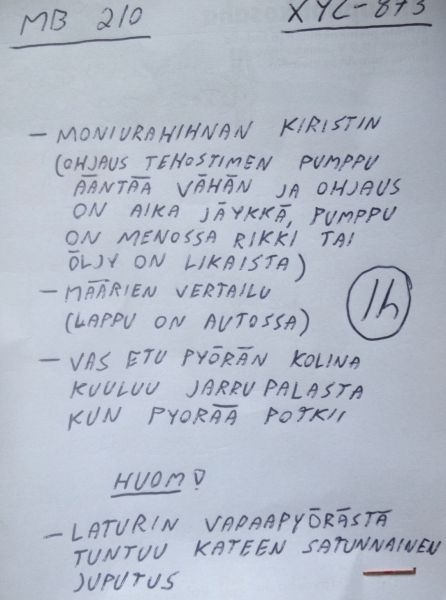 MB 210
XYL-873
- MONIURAHIHNAN KIRISTIN
(OHJAUS TEHOSTIMEN PUMPPU
ÄÄNTÄÄ VÄHÄN JA OHJAUS
ON AIKA JÄYKKÄ, PUMPPU
ON MENOSSA RIKKI TAI
ÖLJY ON LIKAISTA)
- MÄÄRIEN VERTAILU
(LAPPU ON AUTOSSA)
1h
- VAS ETU PYÖRÄN KOLINA
KUULUU JARRU PALASTA
KUN PYORÄÄ POTKII
HUOM!
- LATURIN VAPAAPYÖRÄSTÄ
TUNTUU KATEEN SATUNNAINEN
JUPUTUS